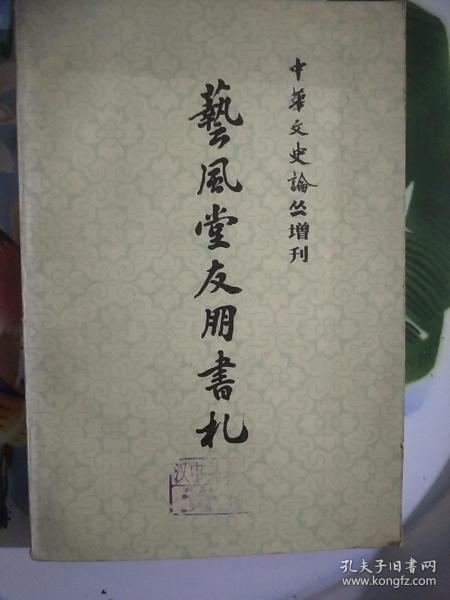 中華文史論丛增刊
藝風堂友朋書札
汉中
孔夫子旧书网
www.kongfz.com